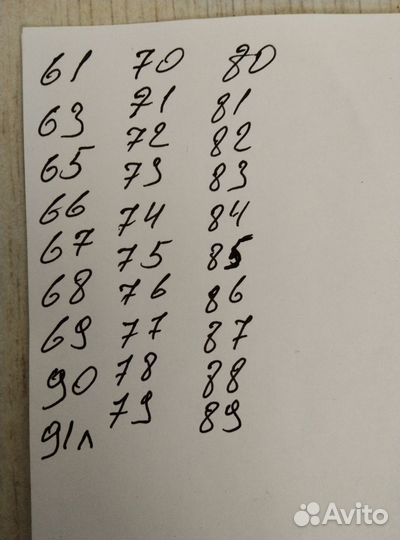 61 70 80
63 71 81
65 72 82
66 73 83
67 74 84
68 75 85
69 76 86
90 77 87
91л 78 88
79 89
Avito